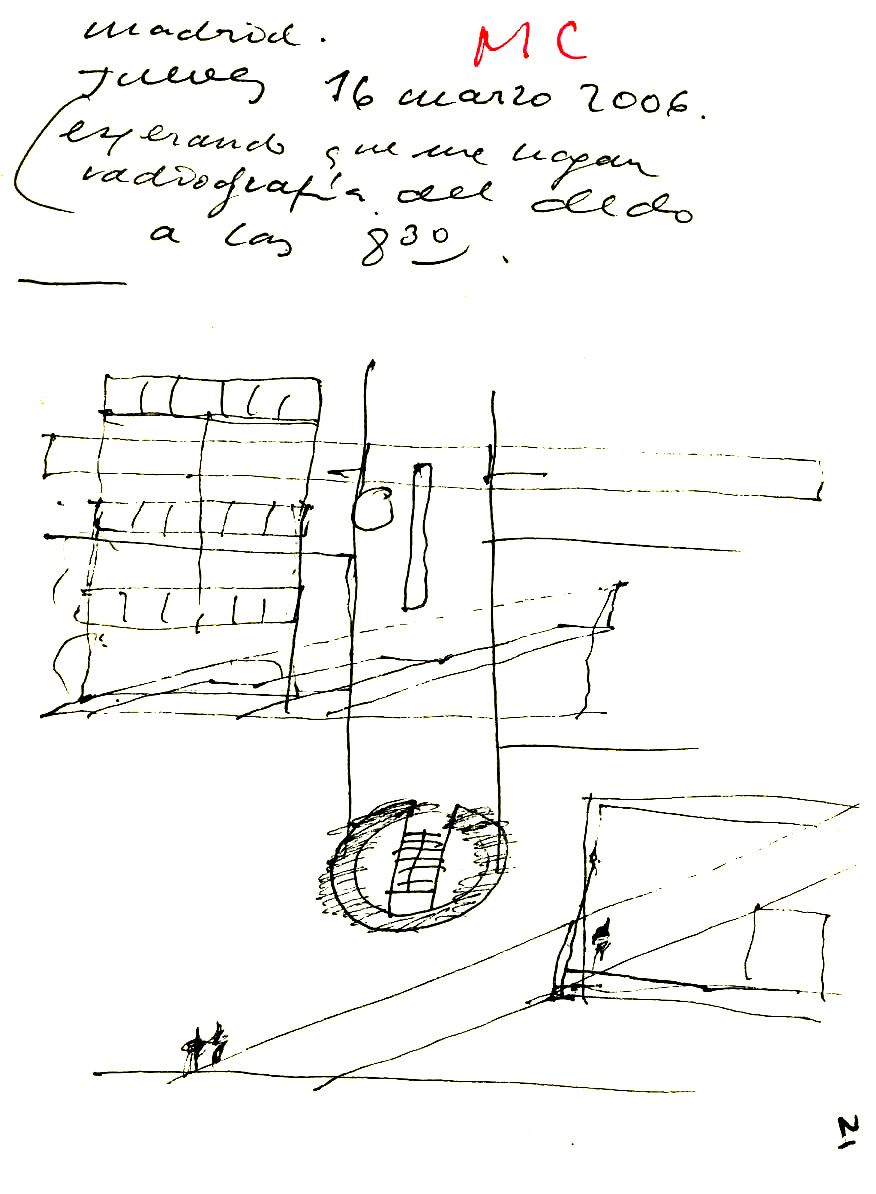 madrid. MC
Jueves 16 marzo 2006.
(esperando que me hagan
radiografía del dedo
a las 8³⁰.
21